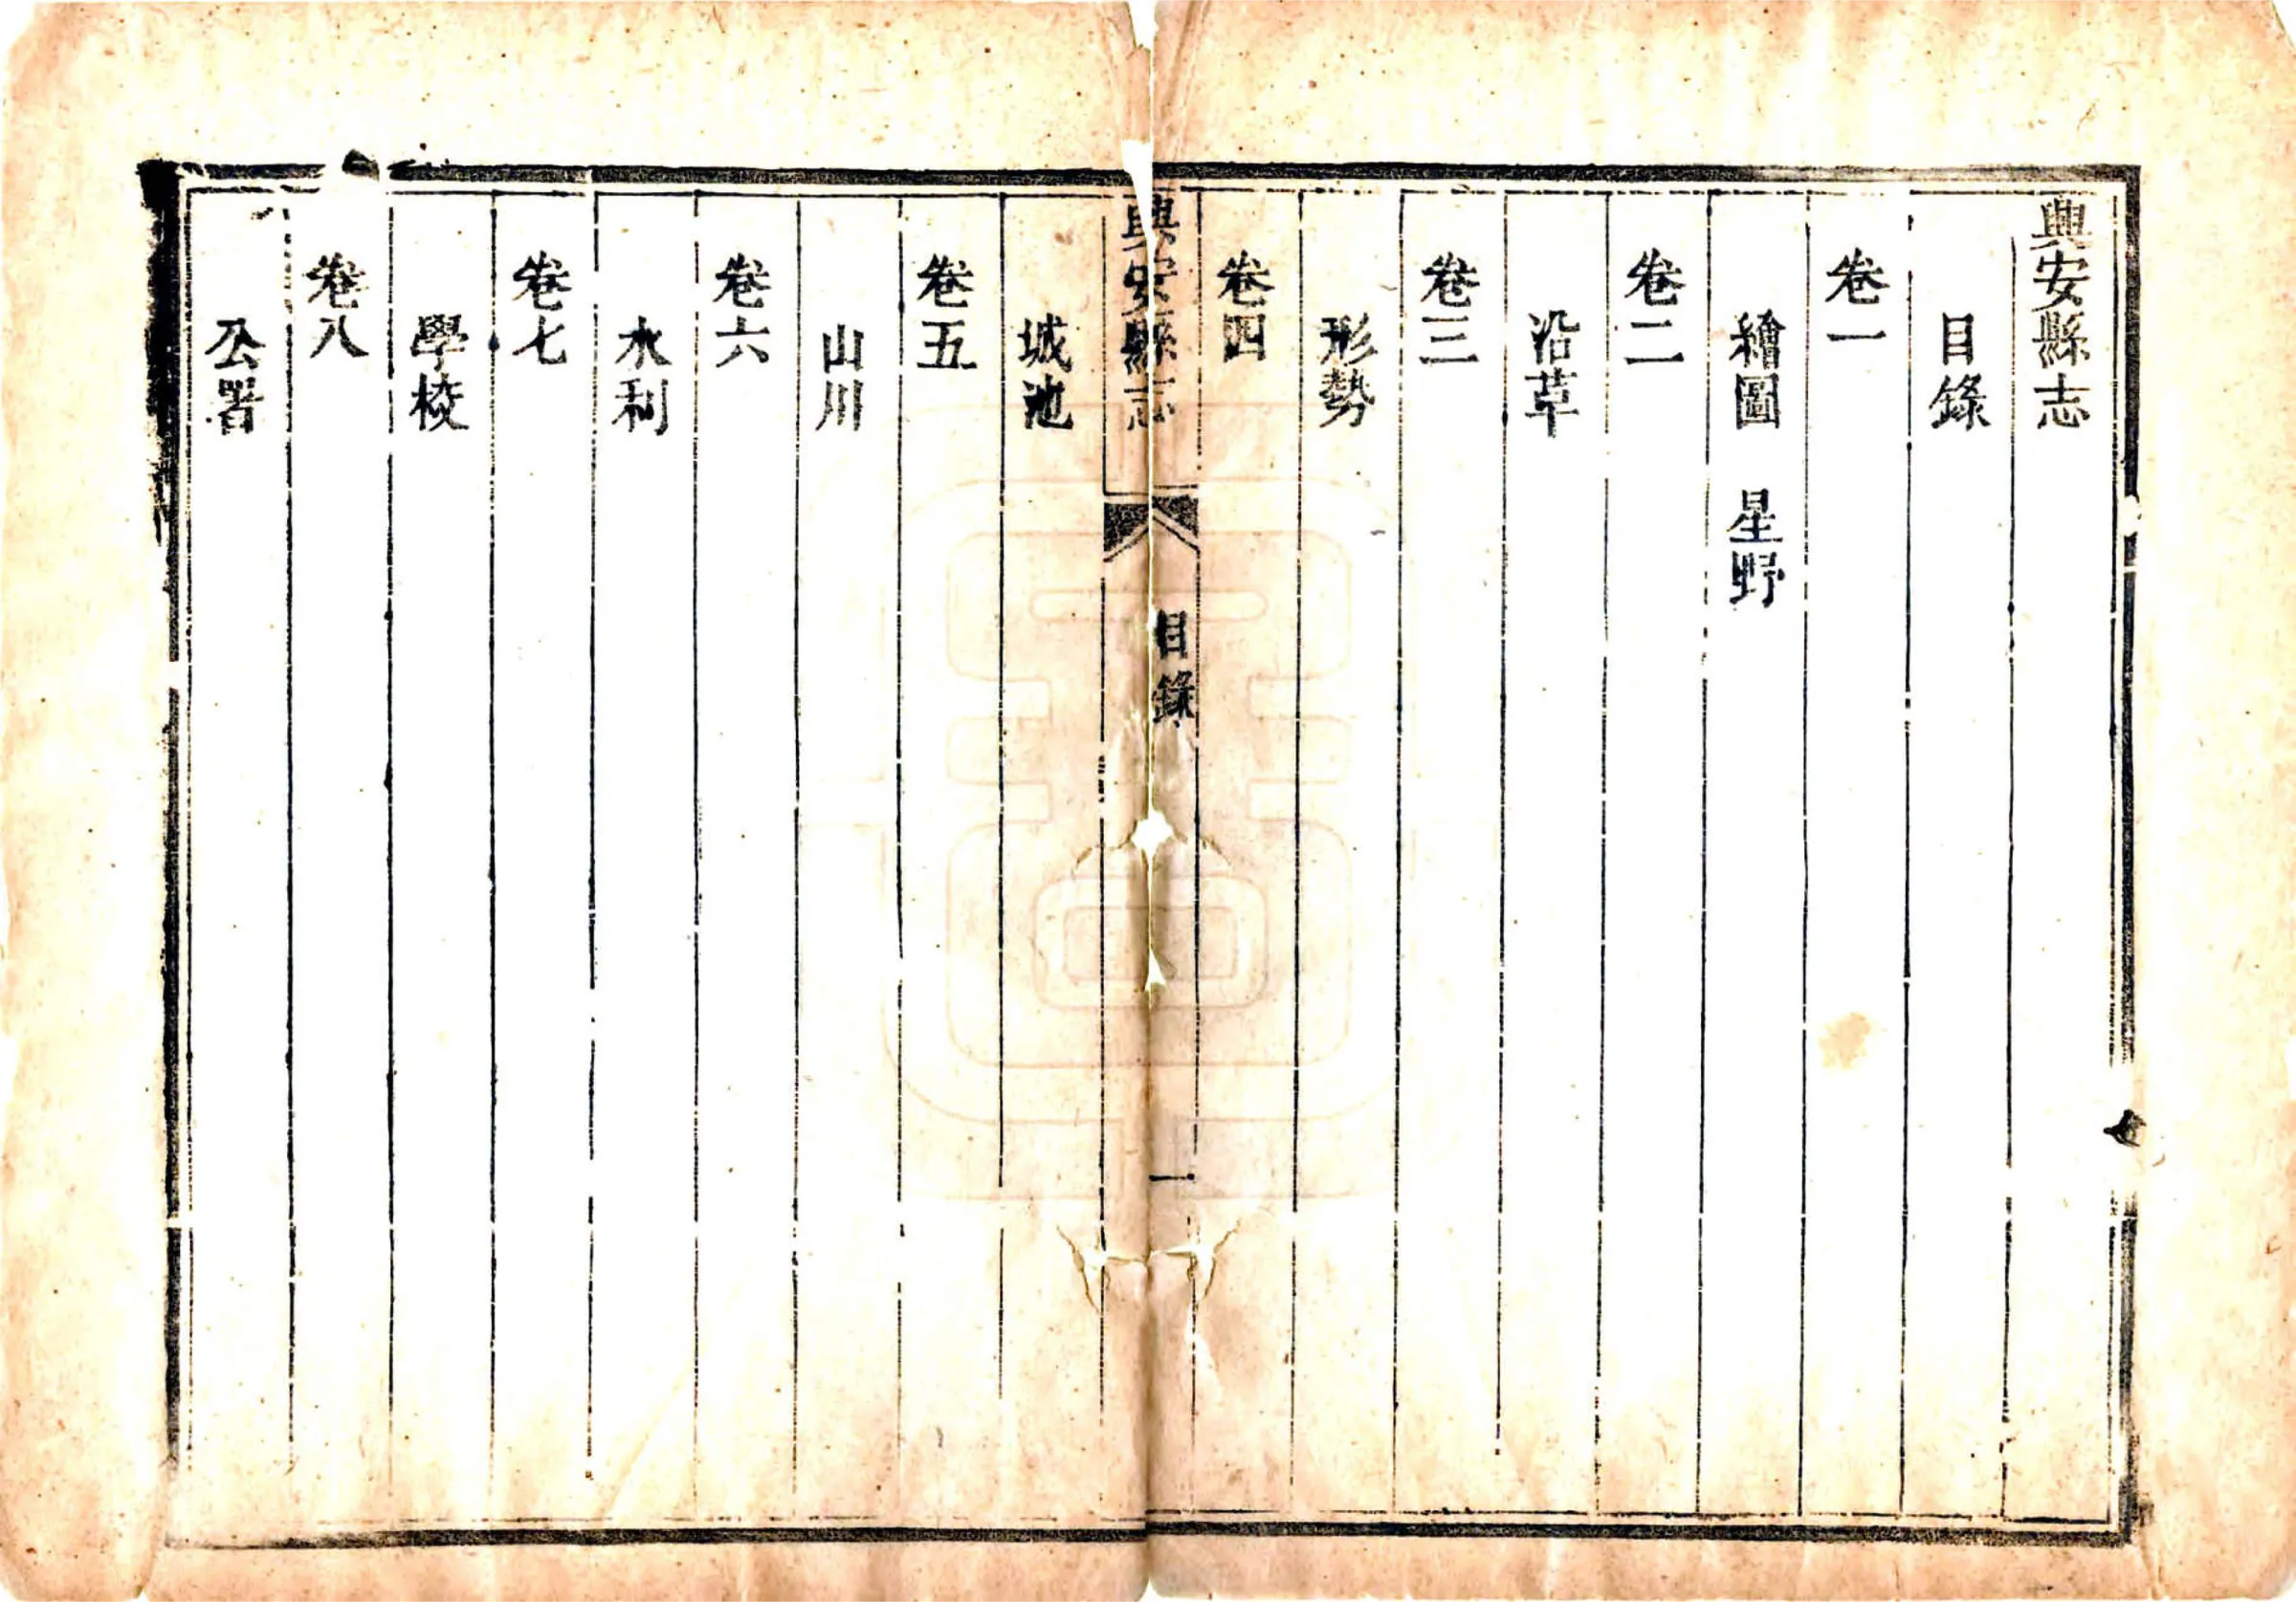 興安縣志
目錄
卷一
繪圖　星野
卷二
沿革
卷三
形勢
卷四
興安縣志
目錄
一
城池
卷五
山川
卷六
水利
卷七
學校
卷八
公署